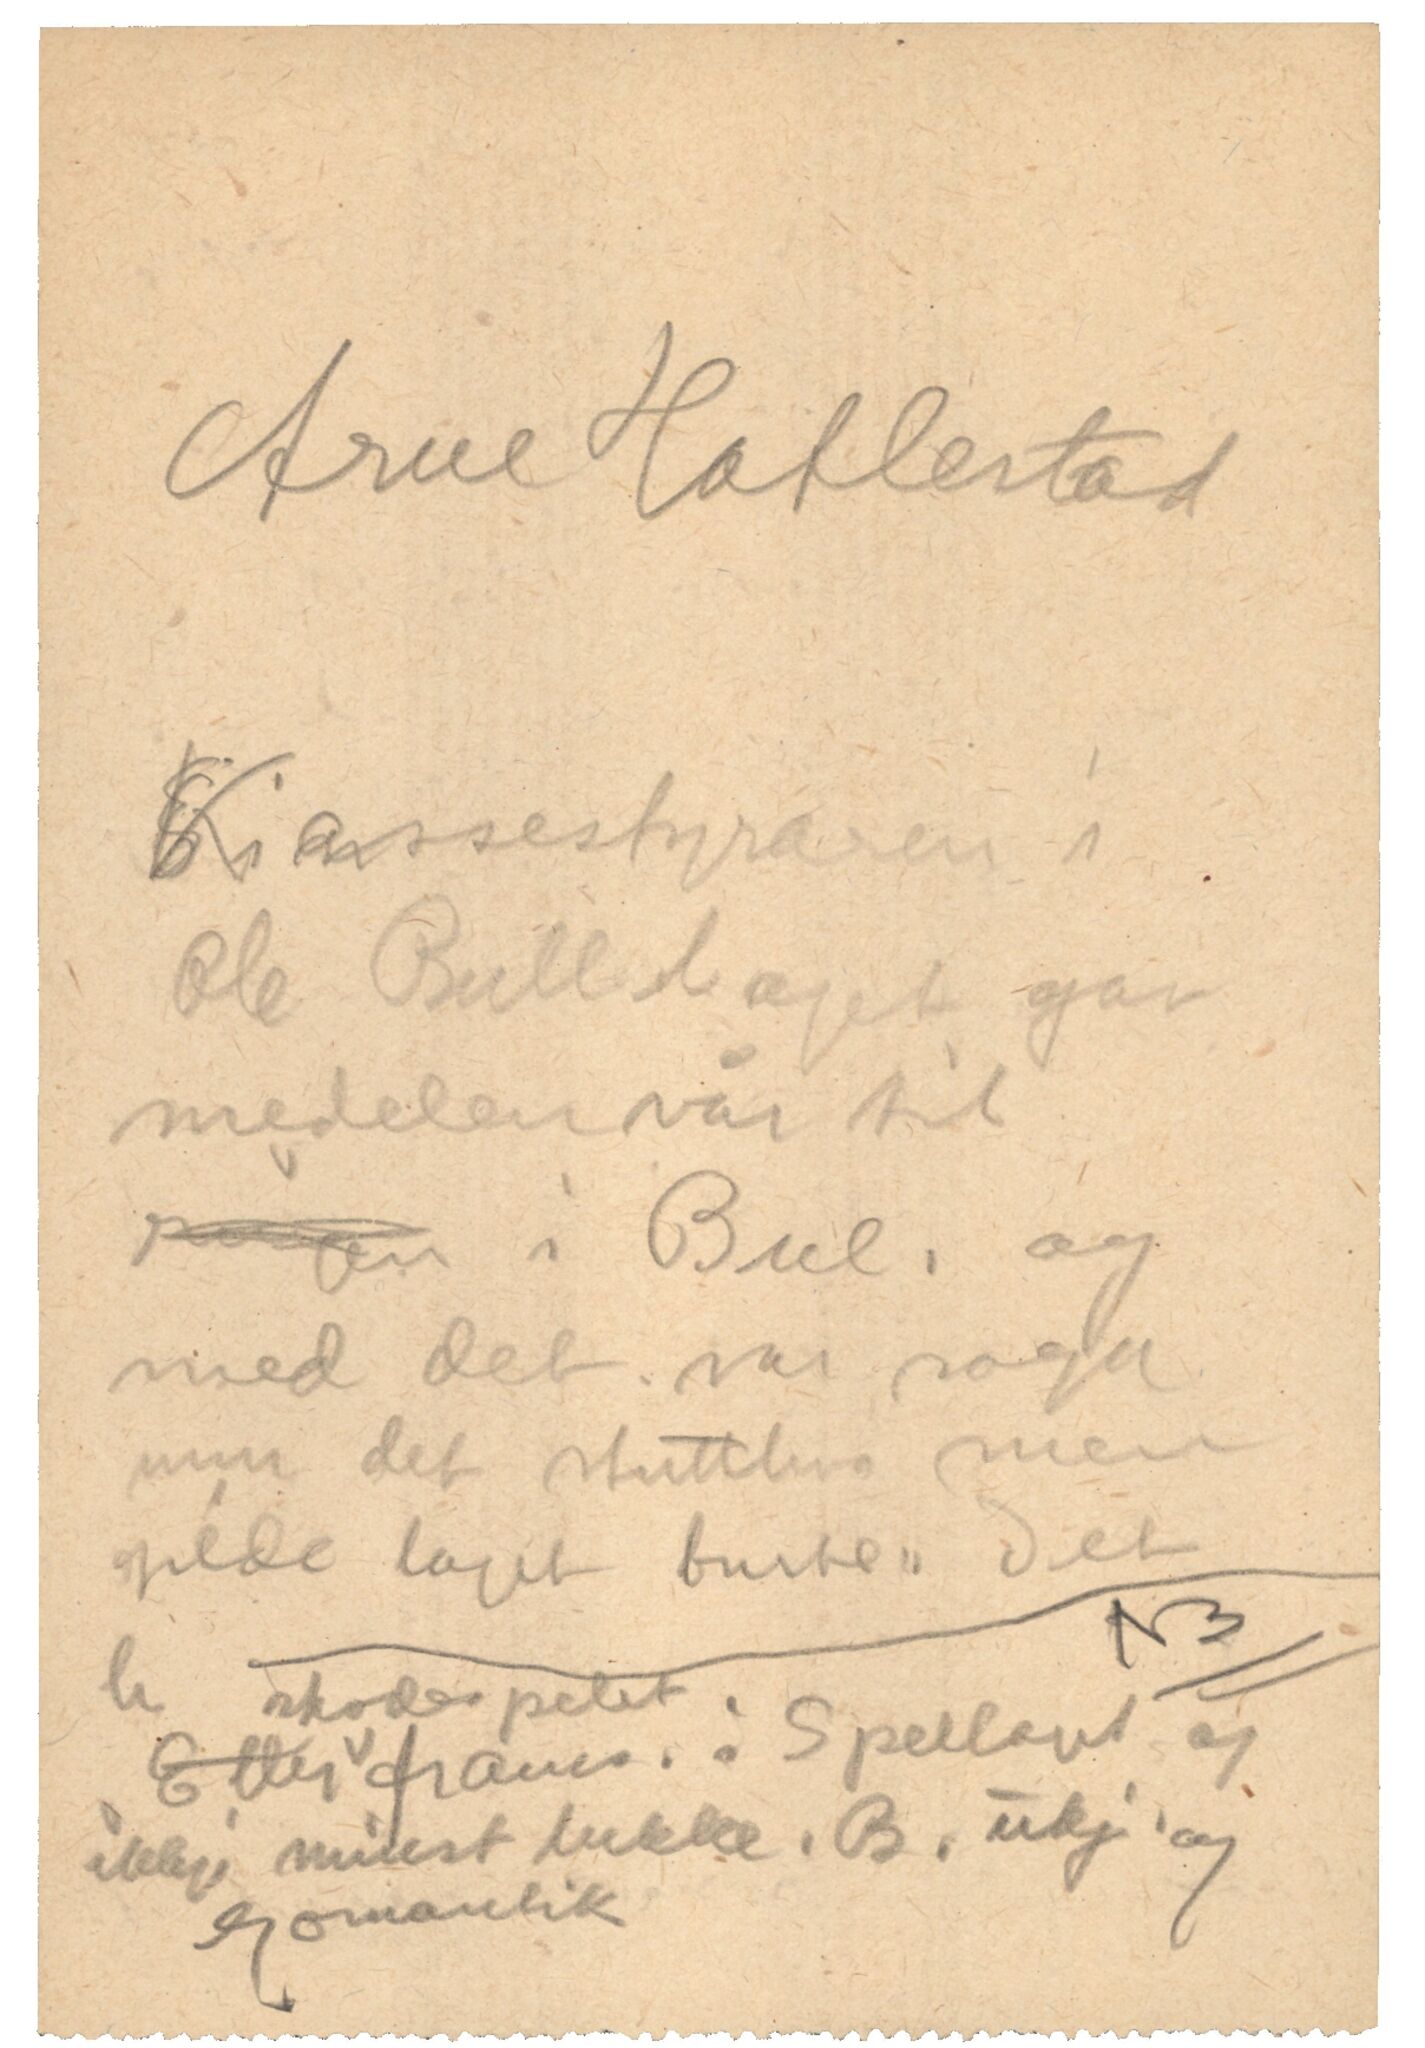 Arne Hatlestad
Kassestyraren i
Ole Bull laget gav
medelen vår til
i Bul. og
med det var soga
um det stuttliva men
gilde laget burte. Det
NB
h skodespelet
Etter frams. i Spellaget og
ikkje minst lukke. B. ukj. og
romantik